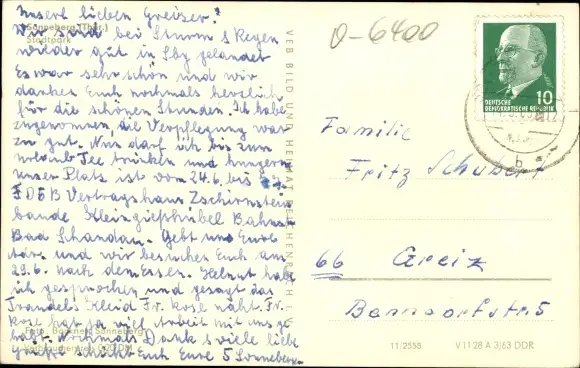 Unsere lieben Greizer!
Sonneberg (Thür.)
Stadtpark
Wir sind bei Sturm & Regen
wieder gut in Sbg gelandet
Es war sehr schön und wir
danken Euch nochmals herzlich
für die schönen Stunden. Ich habe
zugenommen, die Verpflegung war
zu gut. Nun darf ich bis zum
Urlaub Tee trinken und hungern
unser Platz ist vom 24.6. bis
FDGB Vertragshaus Zschirnstein
baude Kleingießhübel Bahnst.
Bad Schandau. Gebt uns Eure
und wir besuchen Euch am
29.6. nach dem Essen. Helmut habe
ich gesprochen und gesagt das
Kleid Fr. Rose näht. Fr.
Rose hat ja viel Arbeit mit uns ge
habt. Nochmals Dank & viele liebe
Grüße schickt Euch Eure 5 Sonneberger
Sonneberg
VEB BILD UND HEIMAT REICHENBACH I. V.
0-6400
DEUTSCHE
DEMOKRATISCHE REPUBLIK
10
b
Familie
Fritz Schubert
66 Greiz
Bennsdorfstr. 5
11/2558 V 11 28 A 3/63 DDR